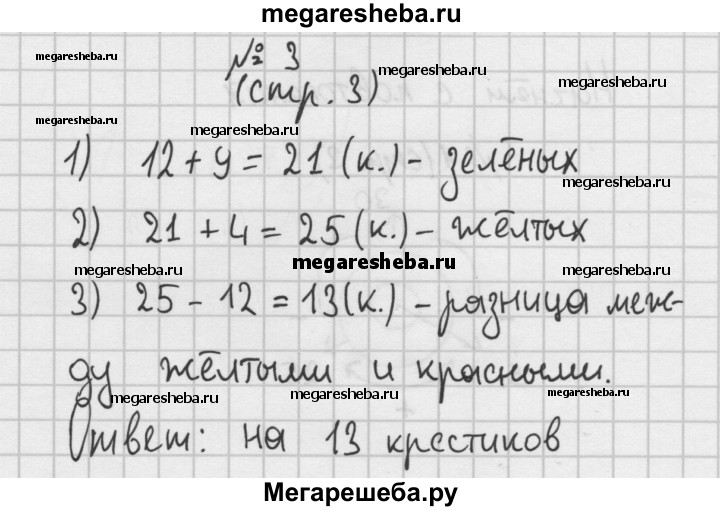 megaresheba.ru
megaresheba.ru
№ 3
megaresheba.ru
megaresheba.ru
(стр. 3)
megaresheba.ru
megaresheba.ru
1) 12 + 9 = 21 (к.) - зелёных
megaresheba.ru
2) 21 + 4 = 25 (к.) - жёлтых
megaresheba.ru
megaresheba.ru
megaresheba.ru
3) 25 - 12 = 13 (к.) - разница меж-
ду жёлтыми и красными.
megaresheba.ru
megaresheba.ru
Ответ: на 13 крестиков
Мегарешеба.ру